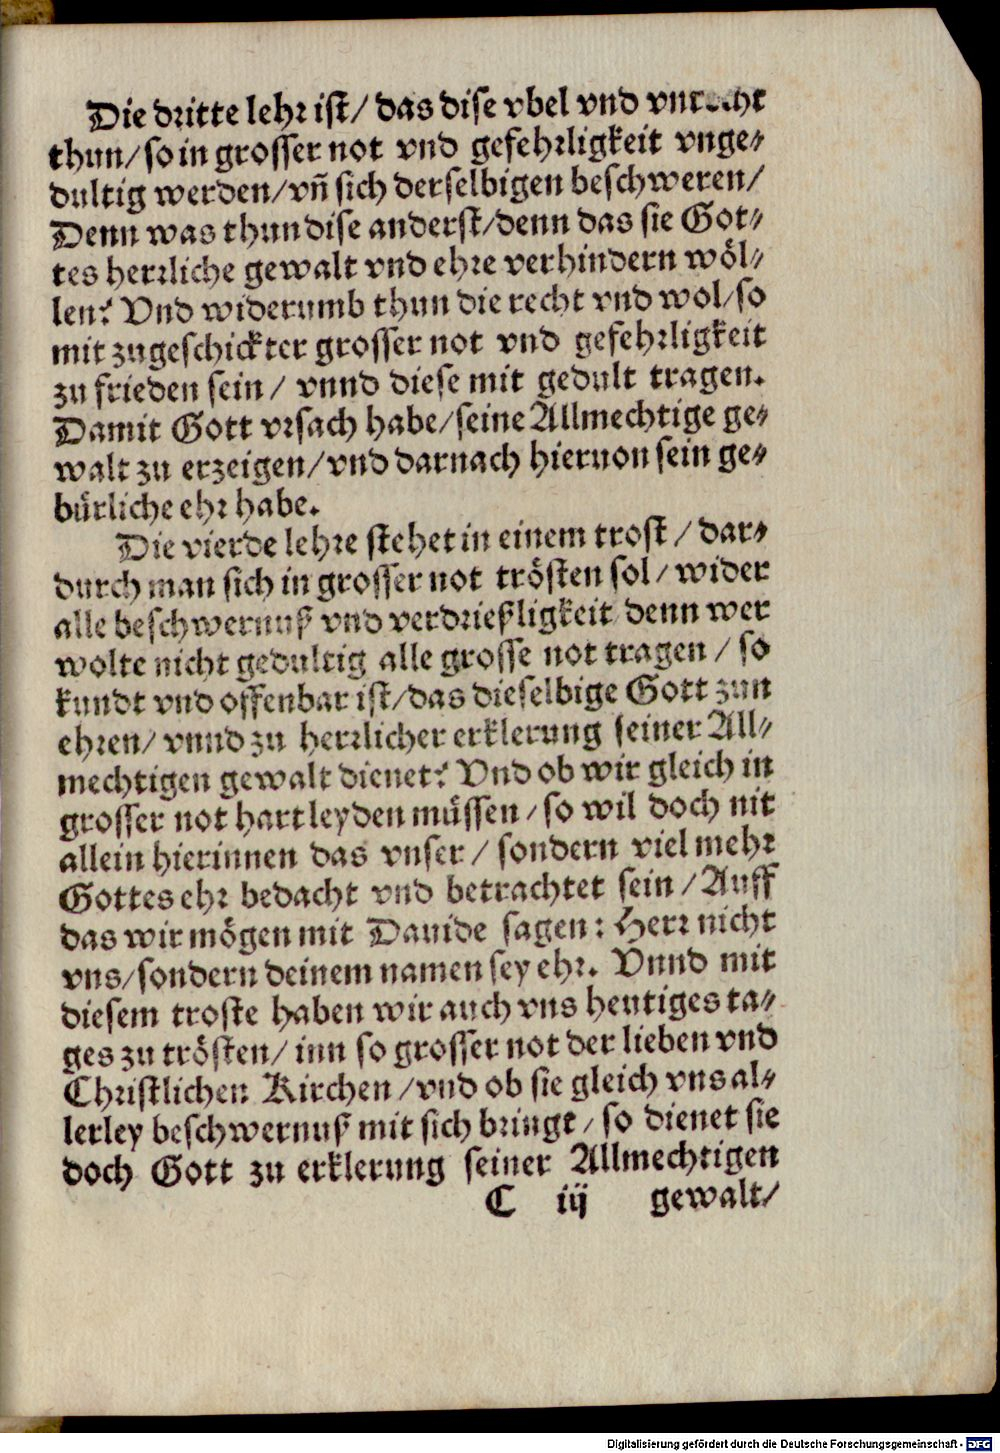 Die dritte lehr ist/ das dise vbel vnd vnrecht
thun/ so in grosser not vnd gefehrligkeit vnge⸗
dultig werden/ vñ sich derselbigen beschweren/
Denn was thun dise anderst/ denn das sie Got⸗
tes herrliche gewalt vnd ehre verhindern wöl⸗
len? Vnd widerumb thun die recht vnd wol/ so
mit zugeschickter grosser not vnd gefehrligkeit
zu frieden sein/ vnnd diese mit gedult tragen.
Damit Gott vrsach habe/ seine Allmechtige ge⸗
walt zu erzeigen/ vnd darnach hieruon sein ge⸗
bürliche ehr habe.
Die vierde lehre stehet in einem trost/ dar⸗
durch man sich in grosser not trösten sol/ wider
alle beschwernuß vnd verdrießligkeit/ denn wer
wolte nicht gedultig alle grosse not tragen/ so
kundt vnd offenbar ist/ das dieselbige Gott zun
ehren/ vnnd zu herrlicher erklerung seiner All⸗
mechtigen gewalt dienet? Vnd ob wir gleich in
grosser not hart leyden müssen/ so wil doch nit
allein hierinnen das vnser/ sondern viel mehr
Gottes ehr bedacht vnd betrachtet sein/ Auff
das wir mögen mit Dauide sagen: Herr nicht
vns/ sondern deinem namen sey ehr. Vnnd mit
diesem troste haben wir auch vns heutiges ta⸗
ges zu trösten/ inn so grosser not der lieben vnd
Christlichen Kirchen/ vnd ob sie gleich vns al⸗
lerley beschwernuß mit sich bringt/ so dienet sie
doch Gott zu erklerung seiner Allmechtigen
C iij gewalt/
Digitalisierung gefördert durch die Deutsche Forschungsgemeinschaft - DFG